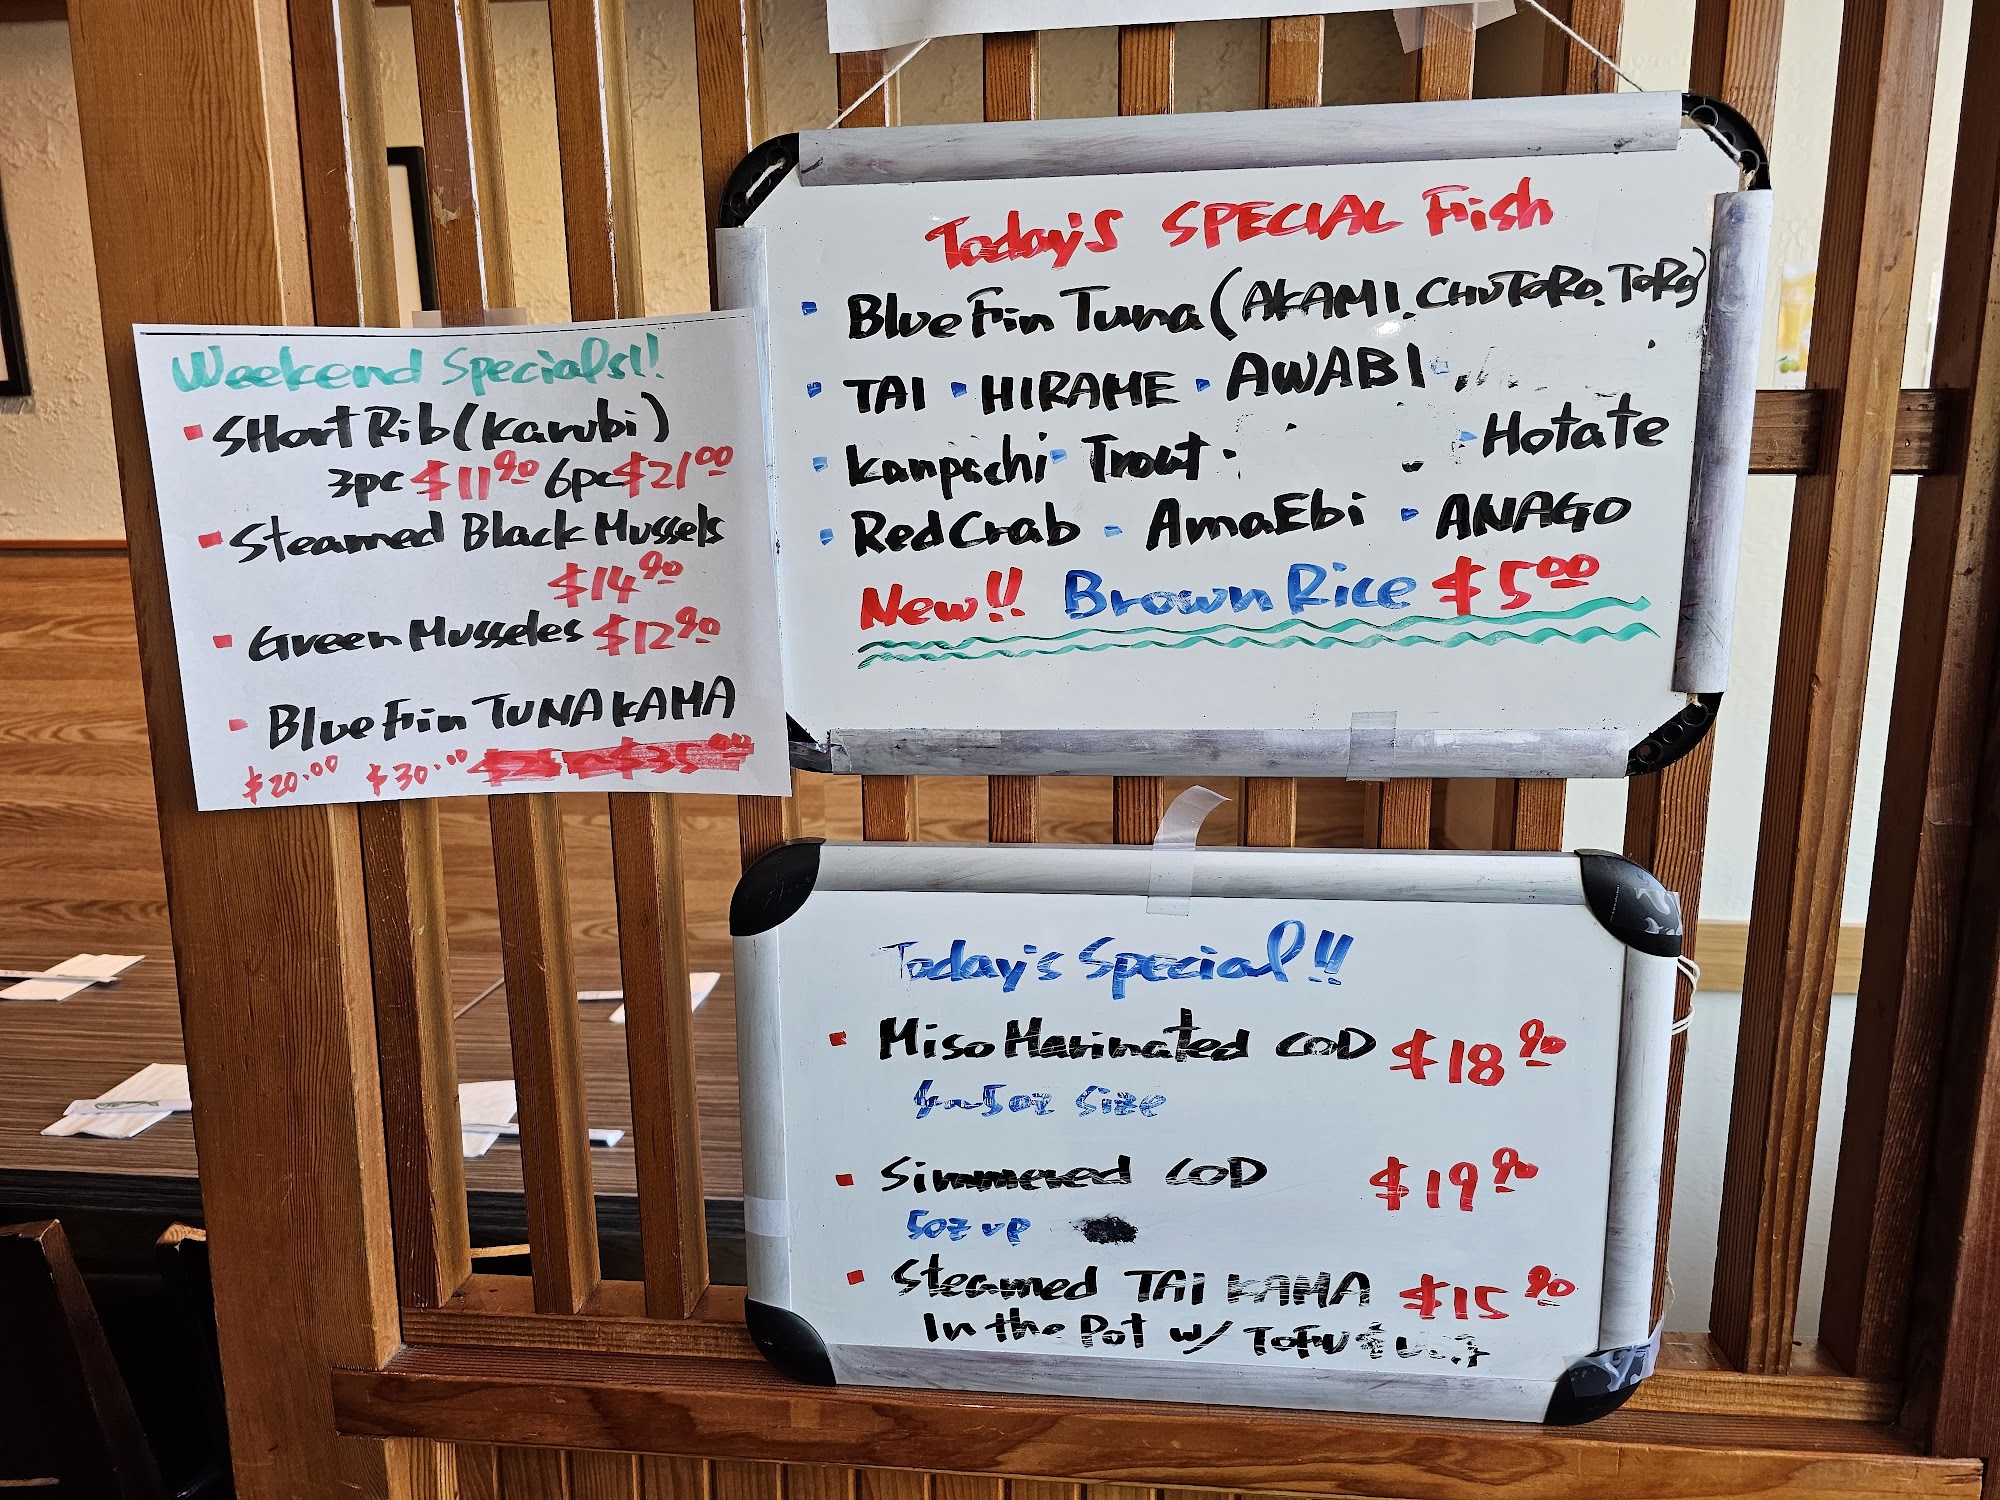 Weekend Specials!!
Short Rib (Karubi)
3pc $11.90 6pc $21.00
Steamed Black Mussels
$14.90
Green Musseles $12.90
Blue Fin TUNA KAMA
$20.00 $30.00
Today's SPECIAL Fish
Blue Fin Tuna (AKAMI. CHUTORO. TORO)
TAI · HIRAME · AWABI
Kanpachi · Trout · Hotate
Red Crab · AmaEbi · ANAGO
New!! Brown Rice $5.00
Today's Special!!
Miso Marinated COD $18.90
5oz size
Simmered COD $19.90
5oz up
Steamed TAI KAMA $15.90
In the Pot w/ TOFU &